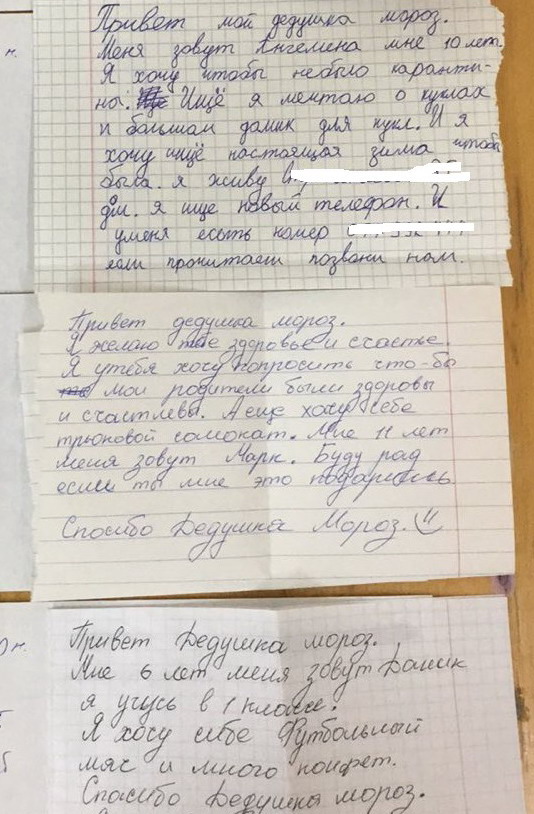 Привет мой дедушка мороз.
Меня зовут Ангелина мне 10 лет.
Я хочу чтобы небыло каранти-
на. Ищё я мечтаю о куклах
и большом домик для кукл. И я
хочу ищё настоящая зима чтобы
была. я живу
дм. я ище новый телефон. И
уменя есыть номер
если прочитаеш позвони нам.
Привет дедушка мороз.
Я желаю тебе здоровье и счастье.
Я утебя хочу попросить что-бы
мои родители были здоровы
и счастлевы. А еще хочу себе
трюковой самокат. Мне 11 лет
меня зовут Марк. Буду рад
если ты мне это подариш.
Спосибо Дедушка Мороз.
Привет Дедушка мороз.
Мне 6 лет меня зовут Даник
я учусь в 1 классе.
Я хочу себе Футбольный
мяс и много конфет.
Спосибо Дедушка мороз.